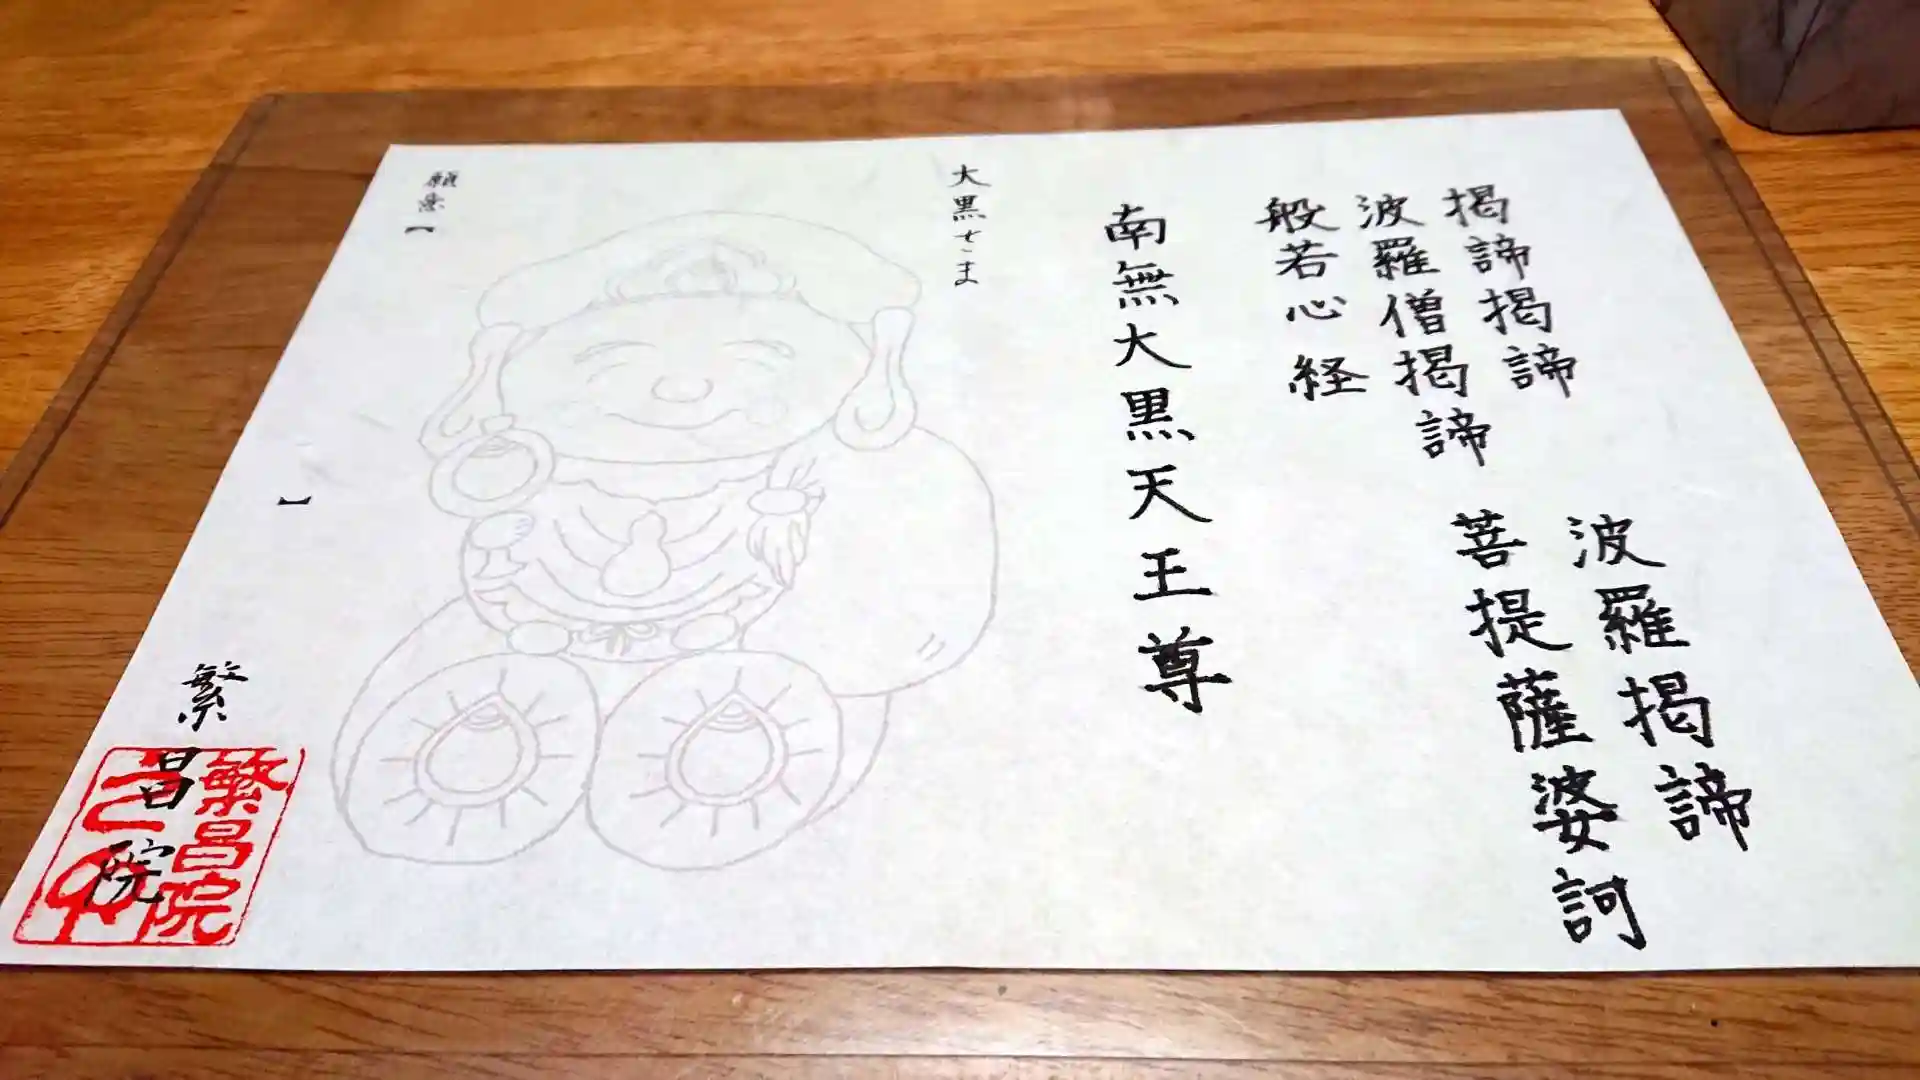 揭諦揭諦　波羅揭諦
波羅僧揭諦　菩提薩婆訶
般若心経
南無大黒天王尊
大黒さま
願意【　】
繁昌院
繁昌院